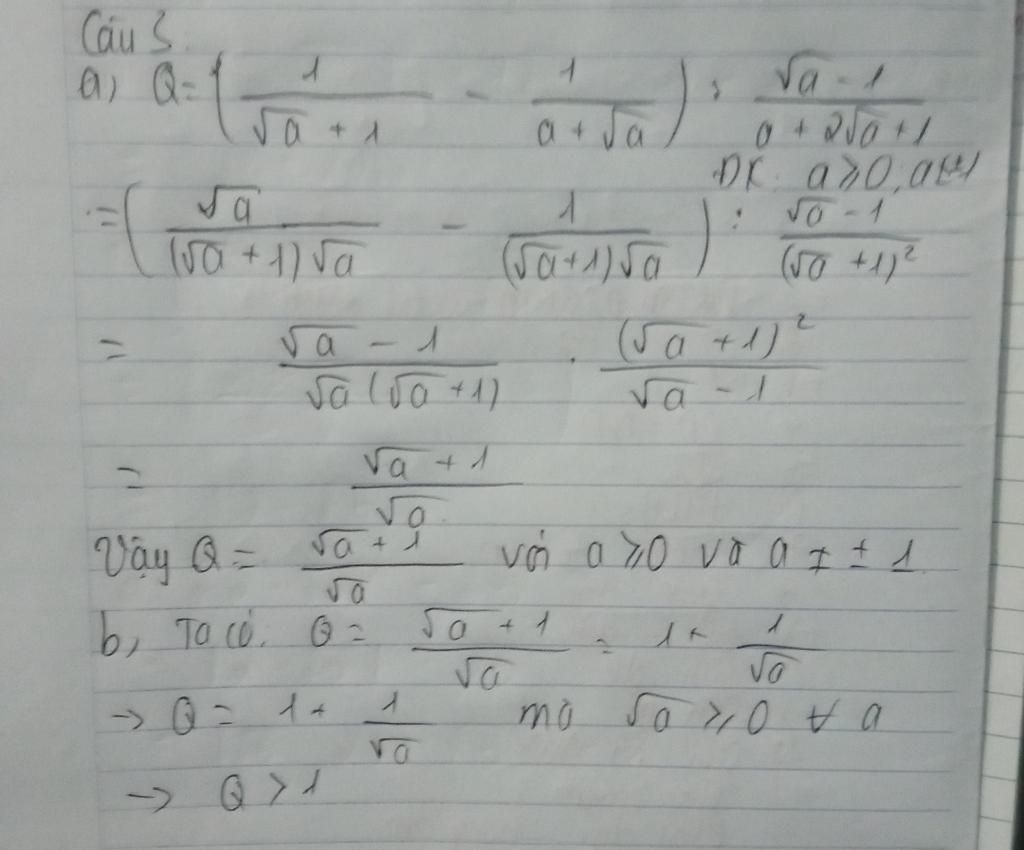 Câu 3.
a, Q = ( 1/(√a + 1) - 1/(a + √a) ) : (√a - 1)/(a + 2√a + 1)
ĐK: a ≥ 0, a
= ( √a/((√a + 1)√a) - 1/((√a+1)√a) ) : (√a - 1)/(√a + 1)²
= (√a - 1)/(√a(√a + 1)) . (√a + 1)²/(√a - 1)
= (√a + 1)/√a
Vậy Q = (√a + 1)/√a với a ≥ 0 và a ≠ ± 1
b, Ta có. Q = (√a + 1)/√a = 1 + 1/√a
→ Q = 1 + 1/√a mà √a ≥ 0 ∀ a
→ Q > 1